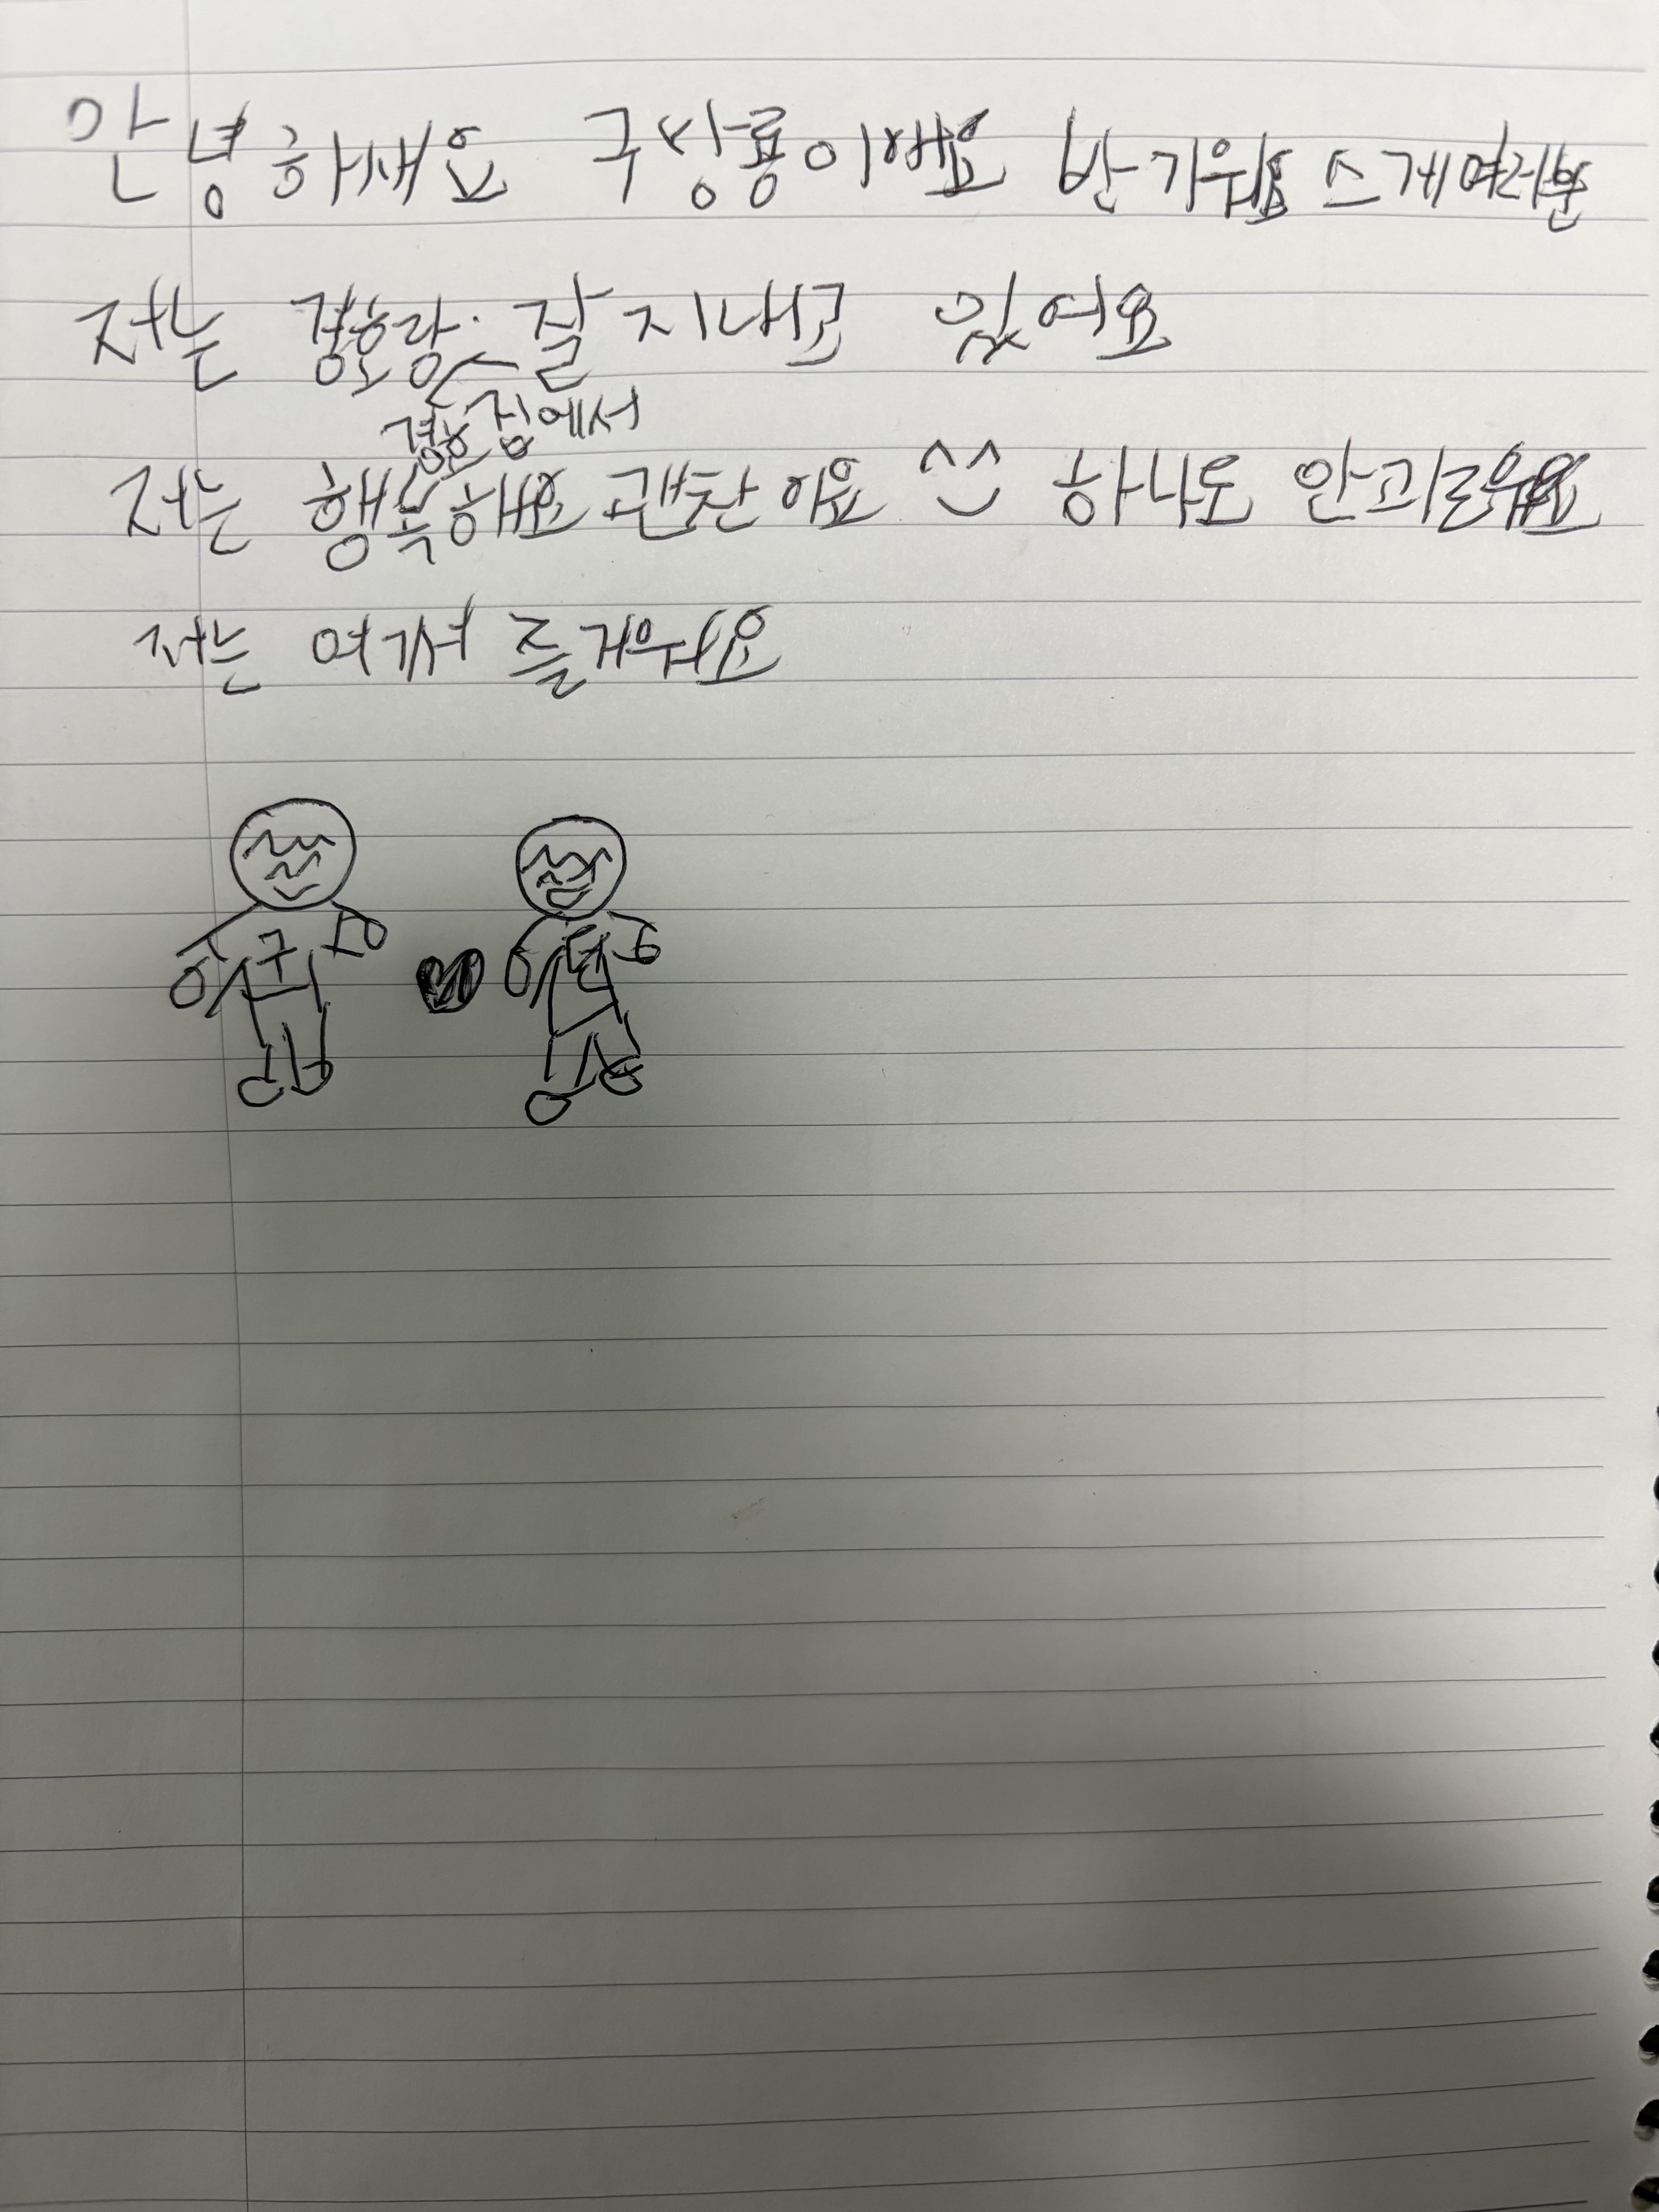 안녕하새요 구상룡이에요 반가워요 스게여러분
저는 경호랑 잘 지내고 있어요
경호집에서
저는 행복해요 괜찬아요 ^^ 하나도 안괴로워요
저는 여기서 즐거워요
구